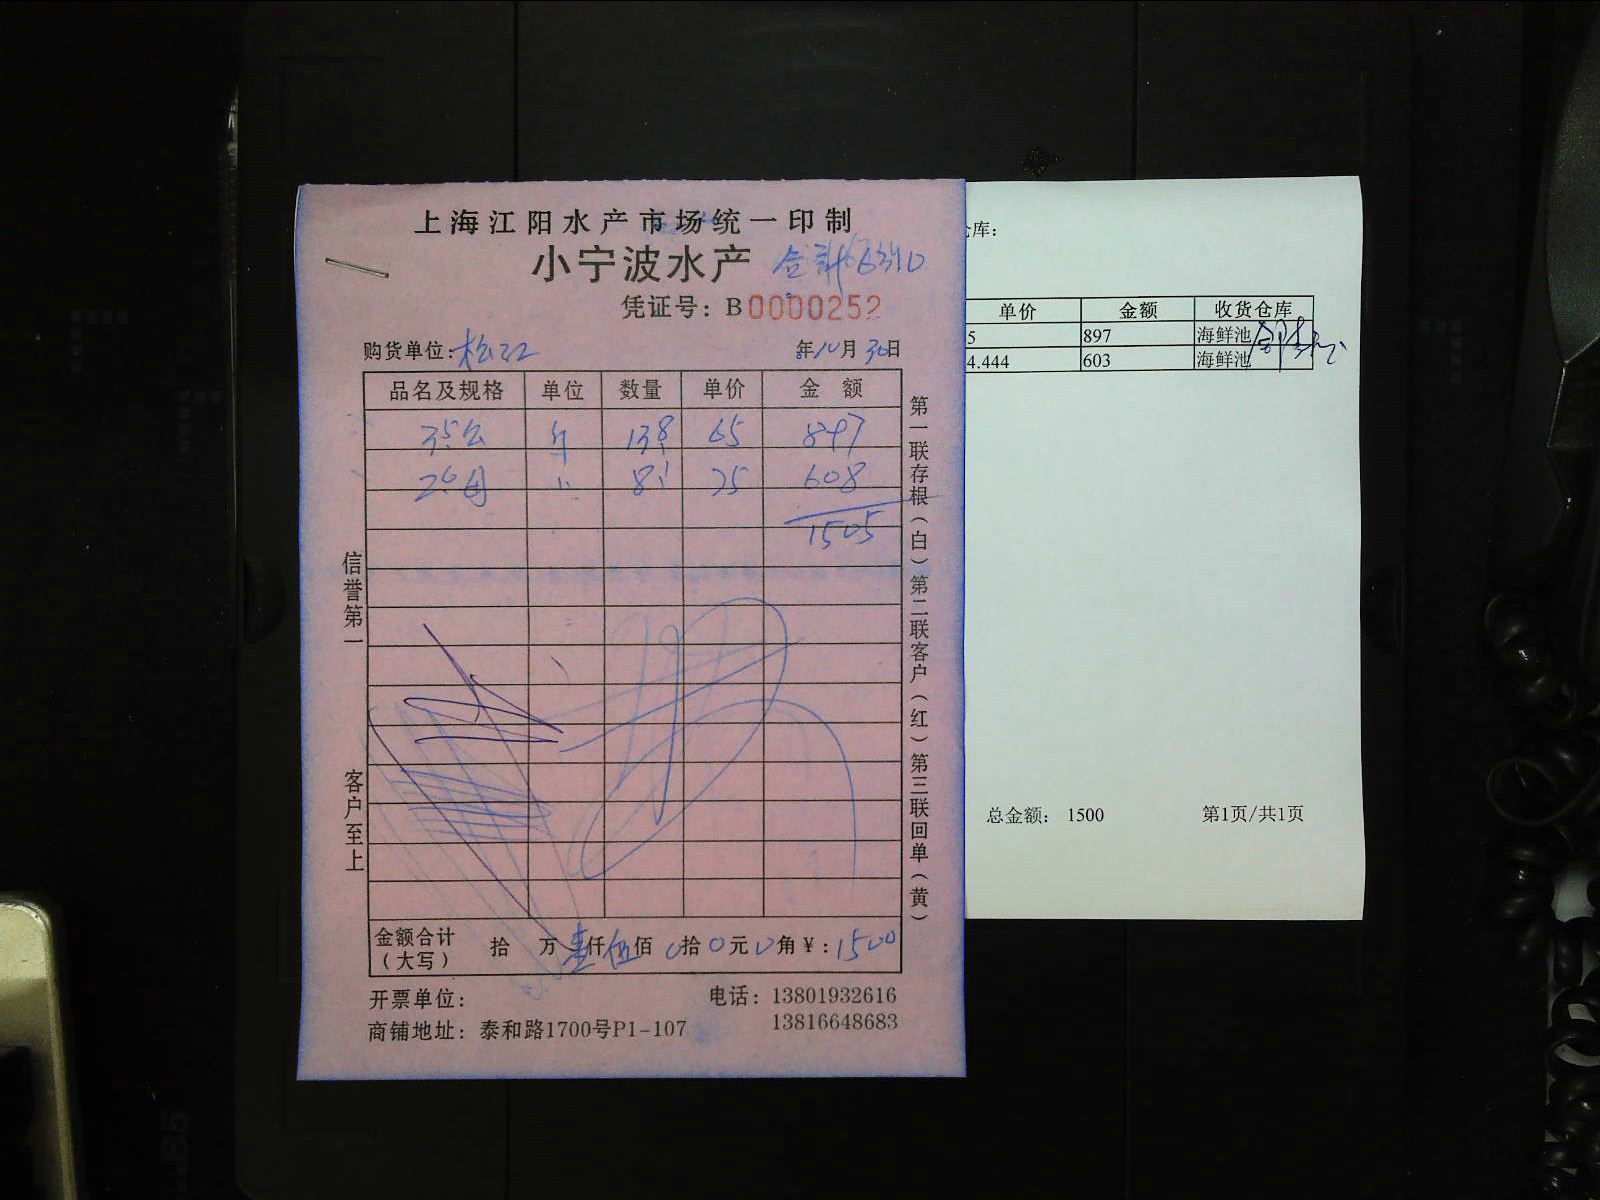 上海江阳水产市场统一印制
小宁波水产
凭证号：B0000252
购货单位：松江 年10月30日
品名及规格 单位 数量 单价 金 额
35公 138 65 897
26母 81 75 608
1505
信誉第一
客户至上
第一联存根（白）第二联客户（红）第三联回单（黄）
金额合计（大写） 拾 万壹仟伍佰0拾0元0角￥：1500
开票单位： 电话：13801932616
13816648683
商铺地址：泰和路1700号P1-107
库：
单价 金额 收货仓库
5 897 海鲜池
4.444 603 海鲜池
总金额： 1500 第1页/共1页